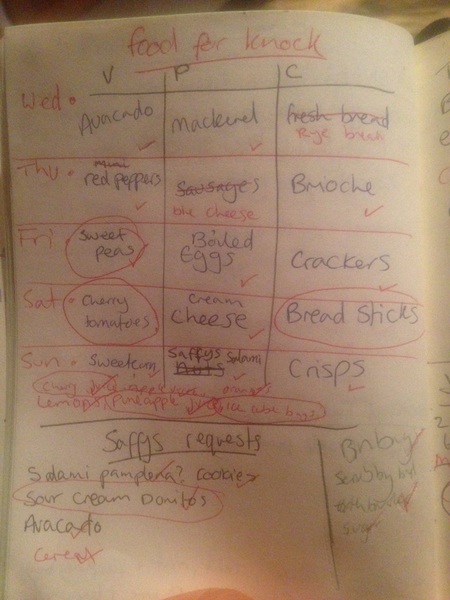 food for knock
V P C
Wed • Avacado Mackerel fresh bread
Rye bread
Thu • mini red peppers Sausages Brioche
blue cheese
Fri Sweet peas Boiled Eggs Crackers
Sat • Cherry tomatoes Cream Cheese Bread Sticks
Sun • Sweetcorn Saffys Salami Nuts Crisps
oranges
Lemons Pineapple ice cube bags
Saffys requests
Salami pamplona? Cookies
Sour Cream Doritos
Avacado
Cereal
Bnbuy
Sugar